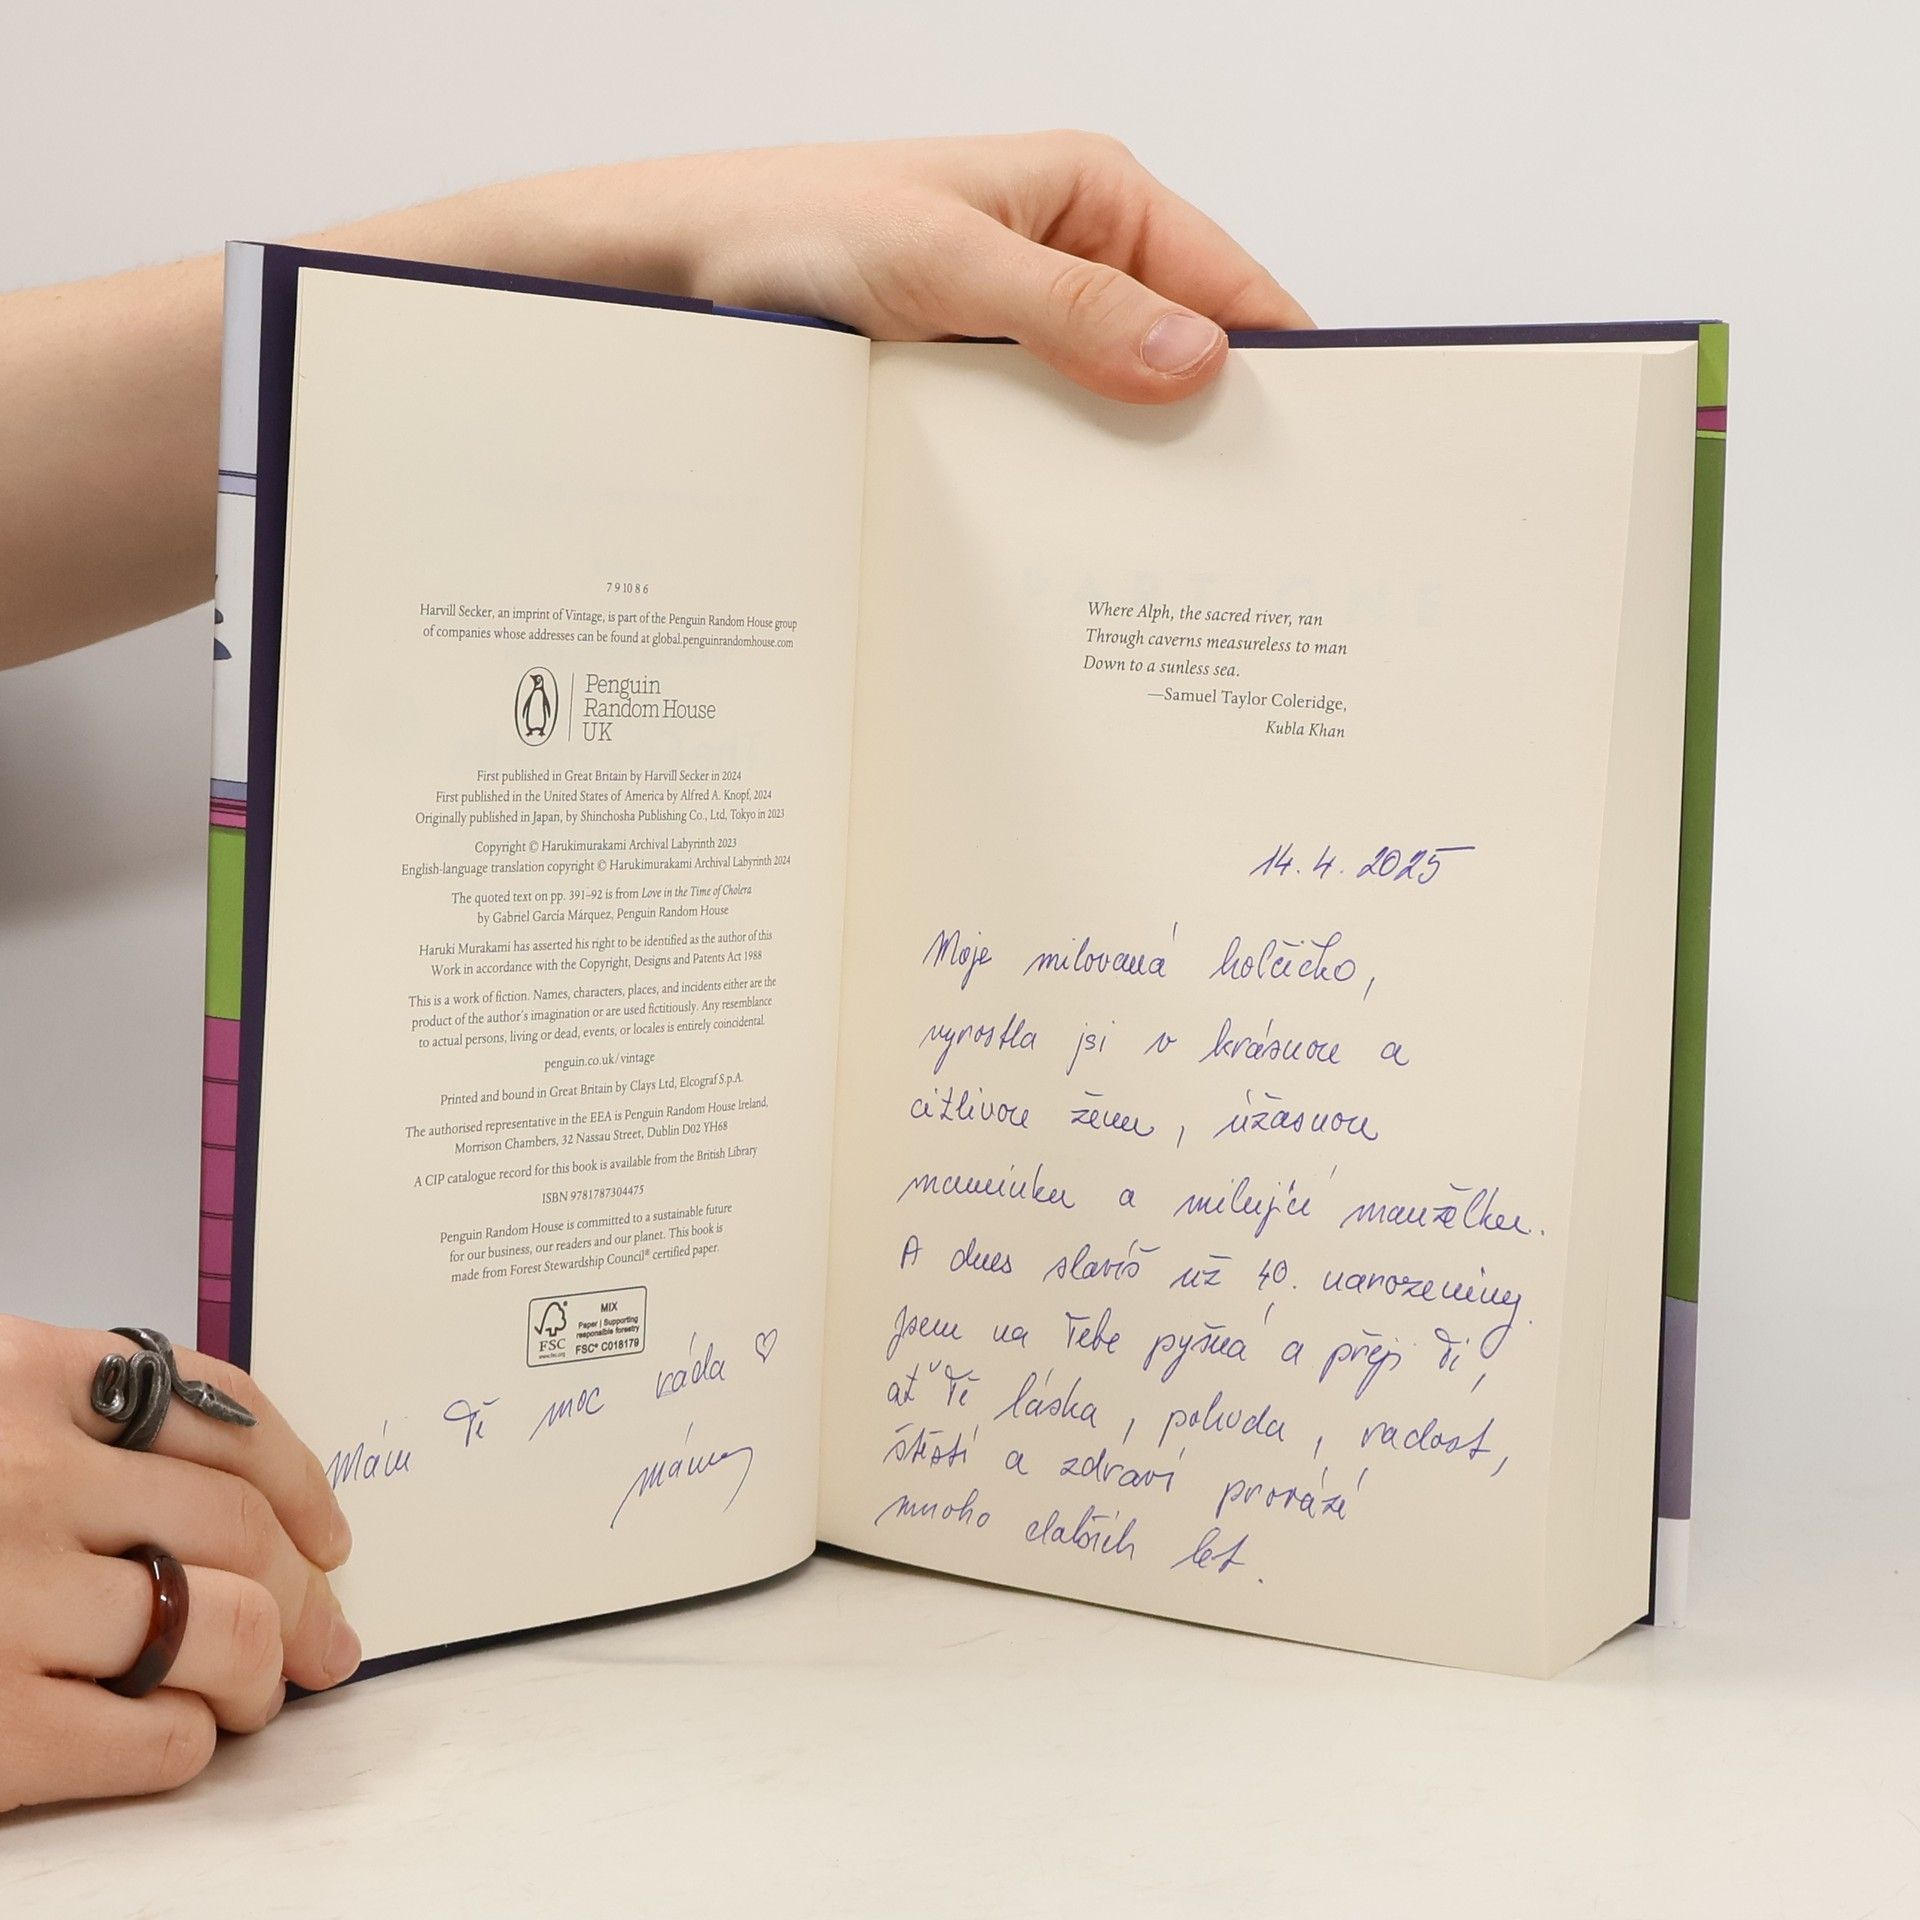 7 9 10 8 6
Harvill Secker, an imprint of Vintage, is part of the Penguin Random House group
of companies whose addresses can be found at global.penguinrandomhouse.com
Penguin
Random House
UK
First published in Great Britain by Harvill Secker in 2024
First published in the United States of America by Alfred A. Knopf, 2024
Originally published in Japan, by Shinchosha Publishing Co., Ltd, Tokyo in 2023
Copyright © Harukimurakami Archival Labyrinth 2023
English-language translation copyright © Harukimurakami Archival Labyrinth 2024
The quoted text on pp. 391–92 is from Love in the Time of Cholera
by Gabriel García Márquez, Penguin Random House
Haruki Murakami has asserted his right to be identified as the author of this
Work in accordance with the Copyright, Designs and Patents Act 1988
This is a work of fiction. Names, characters, places, and incidents either are the
product of the author's imagination or are used fictitiously. Any resemblance
to actual persons, living or dead, events, or locales is entirely coincidental.
penguin.co.uk/vintage
Printed and bound in Great Britain by Clays Ltd, Elcograf S.p.A.
The authorised representative in the EEA is Penguin Random House Ireland,
Morrison Chambers, 32 Nassau Street, Dublin D02 YH68
A CIP catalogue record for this book is available from the British Library
ISBN 9781787304475
Penguin Random House is committed to a sustainable future
for our business, our readers and our planet. This book is
made from Forest Stewardship Council® certified paper.
FSC
www.fsc.org
MIX
Paper | Supporting
responsible forestry
FSC® C018179
Mám Tě moc ráda ♡
mámy
Where Alph, the sacred river, ran
Through caverns measureless to man
Down to a sunless sea.
—Samuel Taylor Coleridge,
Kubla Khan
14. 4. 2025
Moje milovaná holčičko,
vyrostla jsi v krásnou a
citlivou ženu, úžasnou
maminku a milující manželku.
A dnes slavíš už 40. narozeniny.
Jsem na Tebe pyšná a přeji Ti,
ať Tě láska, pohoda, radost,
štěstí a zdraví provází
mnoho dalších let.